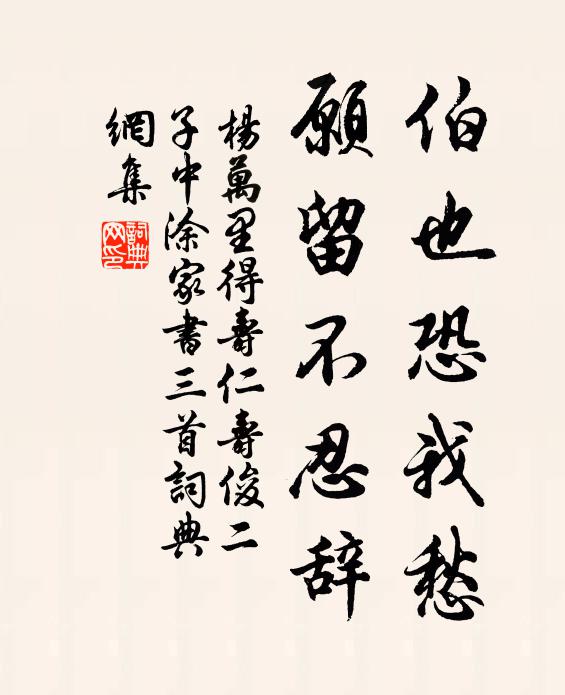 伯也恐我愁
願留不忍辞
楊萬里得壽仁壽俊二
子中涂家書三首詞典
網集
詞典
网印